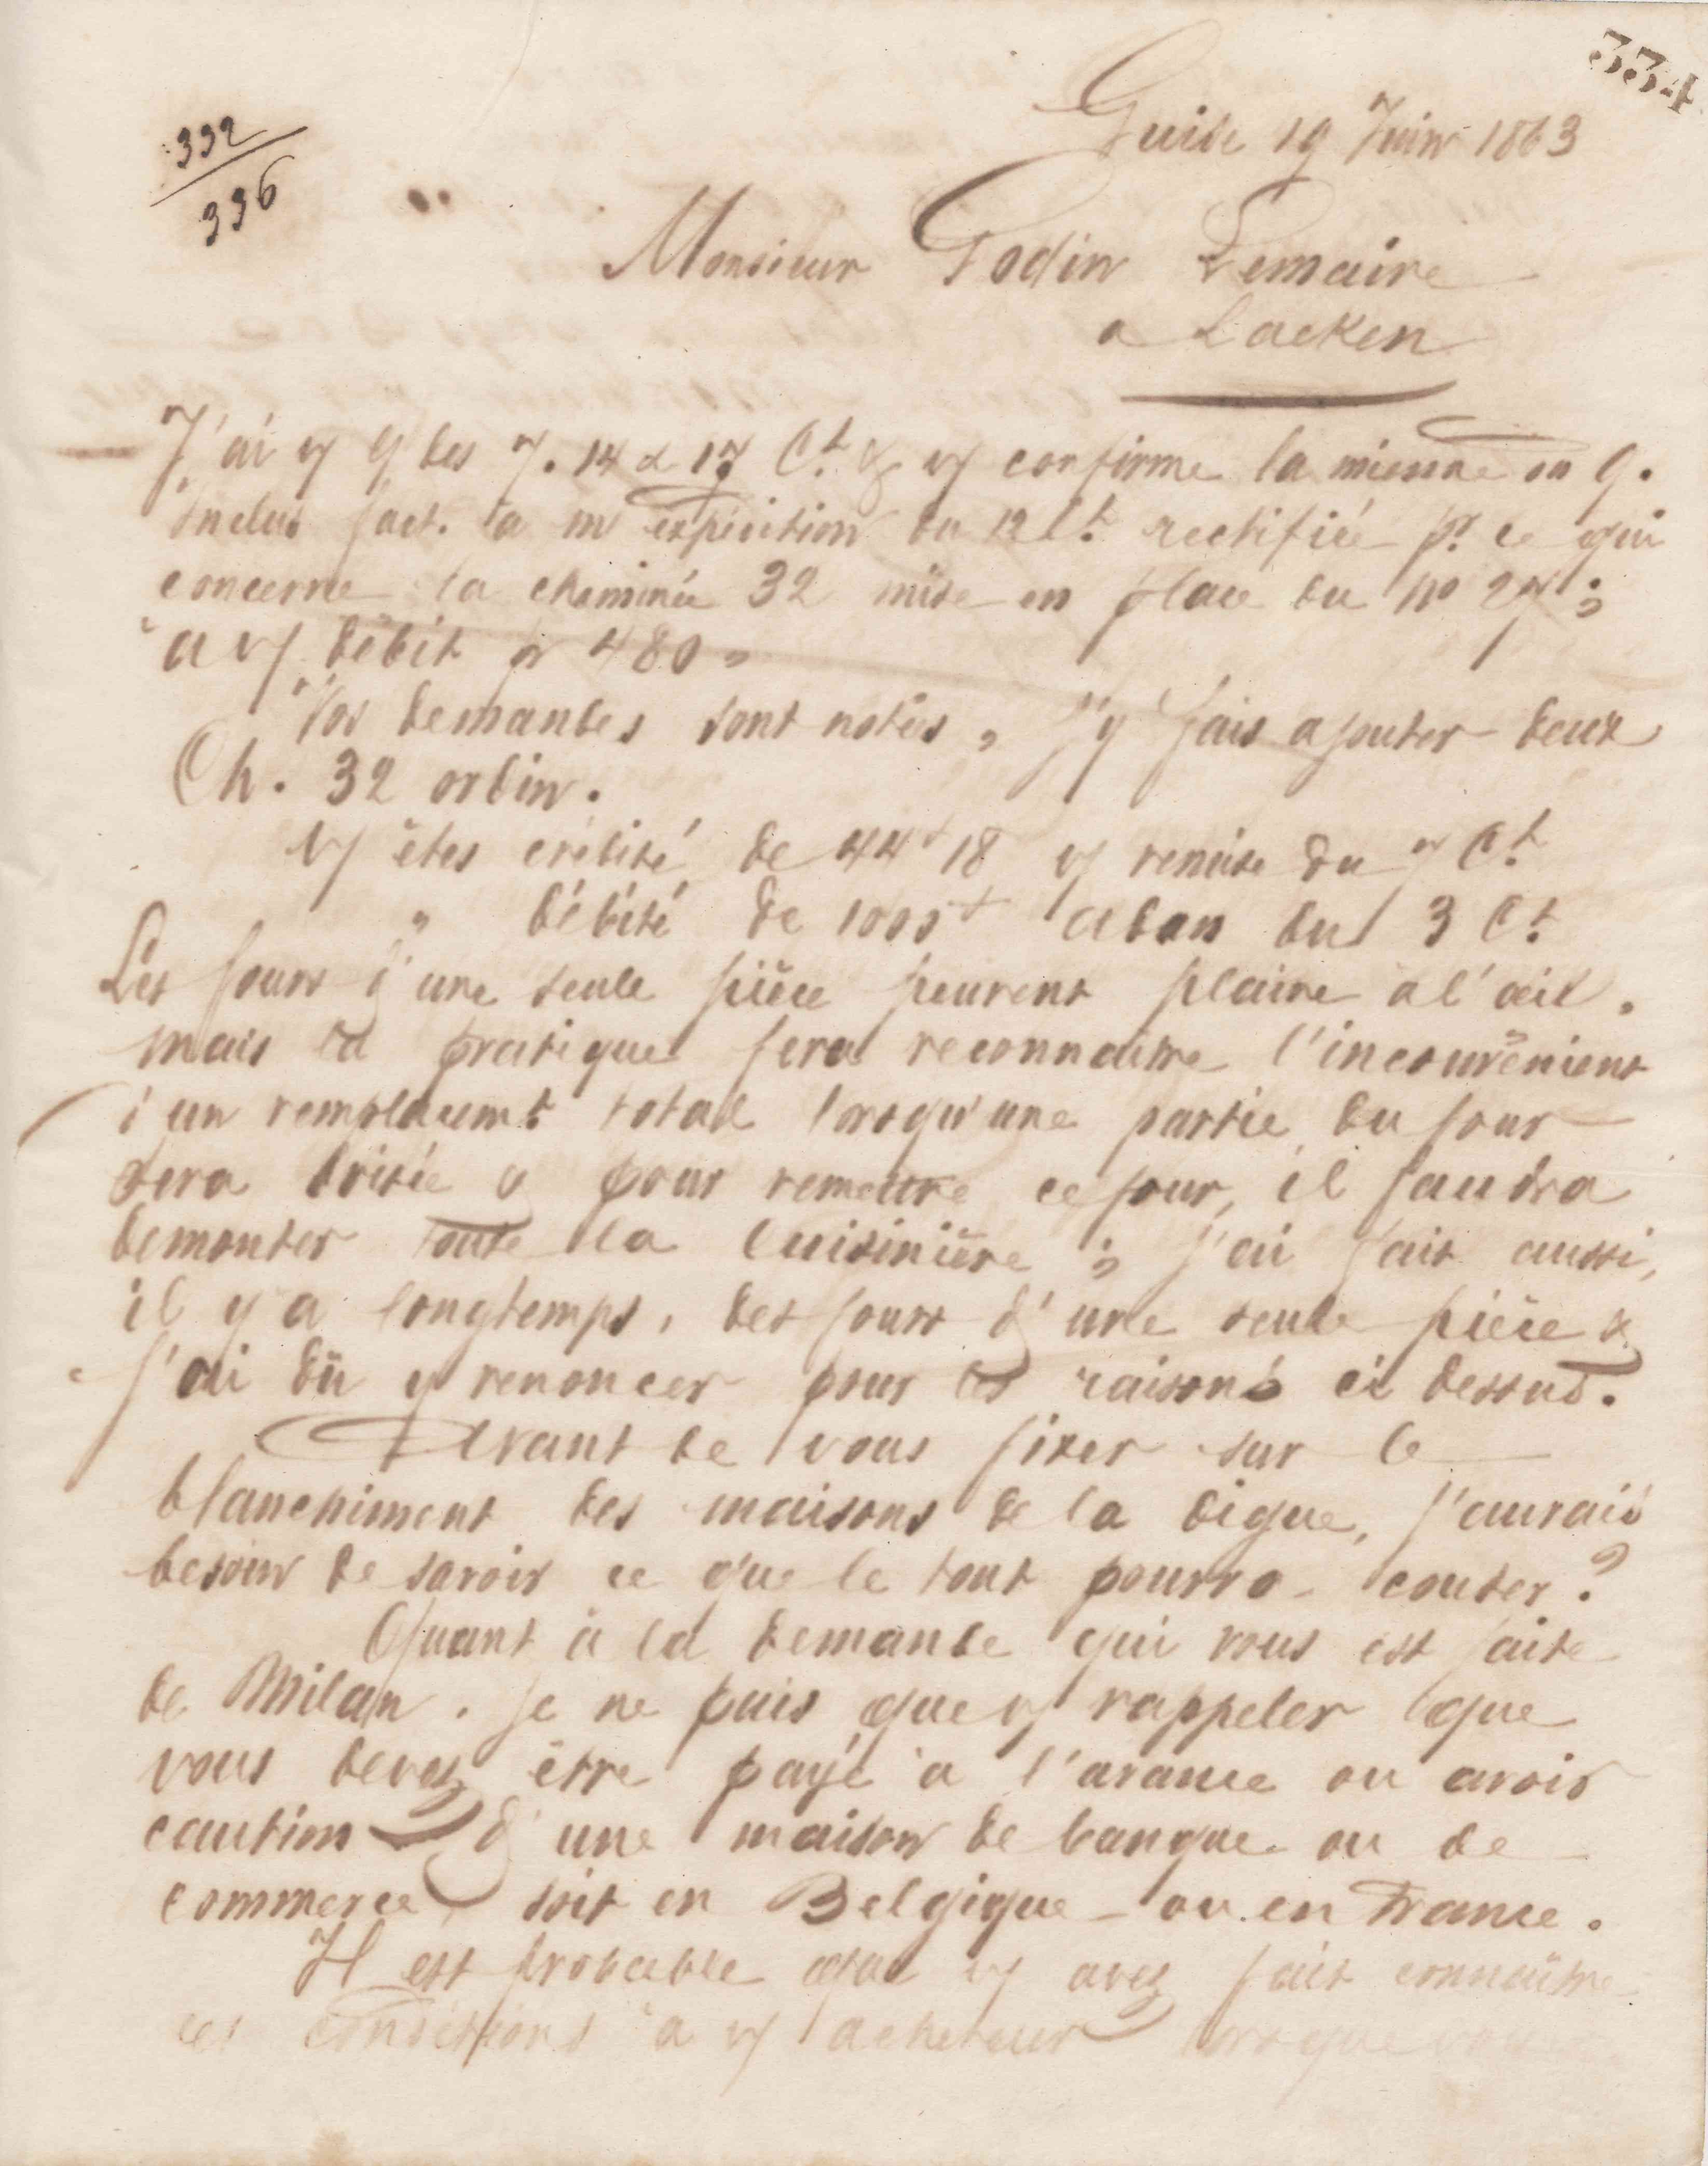 334
332
336
Guise 19 Juin 1863
Monsieur Godin Lemaire
a Laeken
J'ai vs les 7. 14 & 17 Ct & vs confirme la mienne du 9.
Inclus fact. a m expédition du 12 Ct rectifiée pr ce qui
concerne la cheminée 32 mise en place du no 27;
a vs débit pr 480,
Vos demandes sont notées, j'y fais ajouter deux
Ch. 32 ordin.
Vs êtes crédité de 44f 18 vs remise du 7 Ct
" débité de 1005f du 3 Ct
Les fours d'une seule pièce peuvent plaire à l'œil,
mais la pratique fera reconnaitre l'inconvénient
d'un remplacemt total lorsqu'une partie du four
sera brisée & pour remettre ce four, il faudra
demonter toute la cuisinière; j'ai fait aussi,
il y a longtemps, des fours d'une seule pièce &
j'ai dû y renoncer pour les raisons ci dessus.
Avant de vous fixer sur le
blanchiment des maisons de la digue, j'aurais
besoin de savoir ce que le tout pourra couter?
Quant à la demande qui vous est faite
de Milan. je ne puis que vs rappeler que
vous devez être payé a l'avance ou avoir
caution d'une maison de banque ou de
commerce, soit en Belgique ou en France.
Il est probable que vs avez fait connaitre
ces conditions a vs acheteur lorsque vous